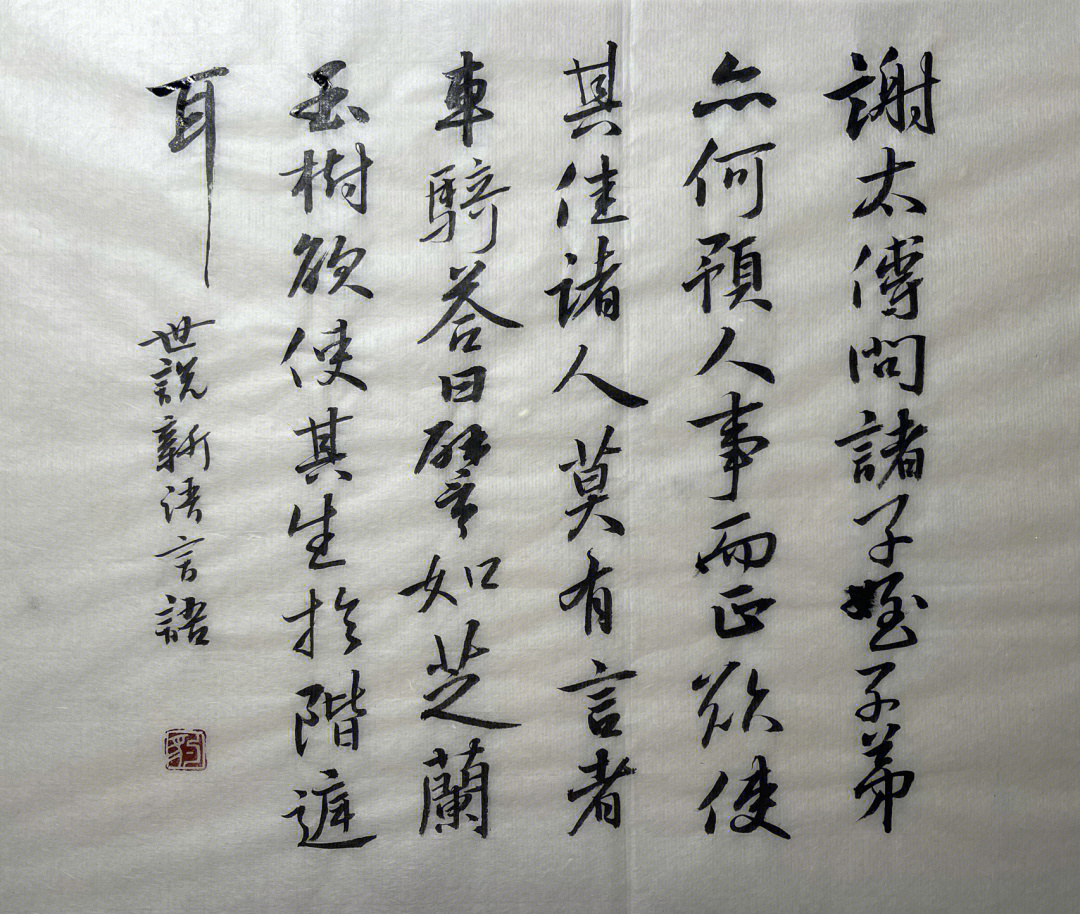 謝太傅問諸子姪子弟
亦何預人事而正欲使
其佳諸人莫有言者
車騎答曰譬如芝蘭
玉樹欲使其生於階庭
耳
世說新语言語